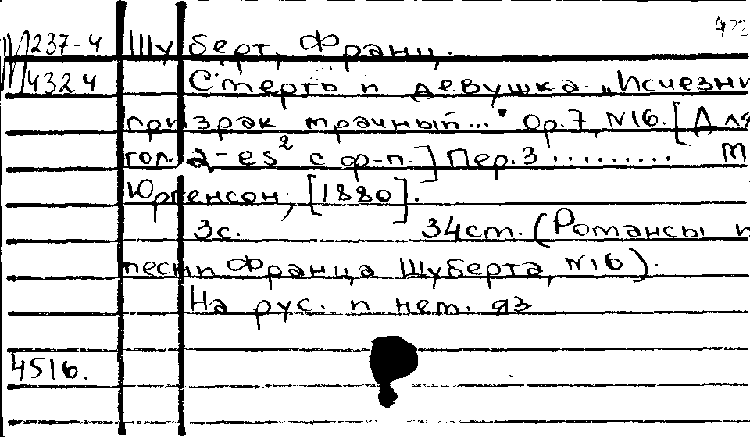 1237-4 Шуберт, Франц.
14324 Смерть и девушка. „Исчезни
призрак мрачный..." Op. 7, №16. [Для
гол. a-es² с ф-п.] Пер. З ......... М
Юргенсон, [1880].
3с. 34см. (Романсы и
песни Франца Шуберта, №16).
На рус. и нем. яз
4516.